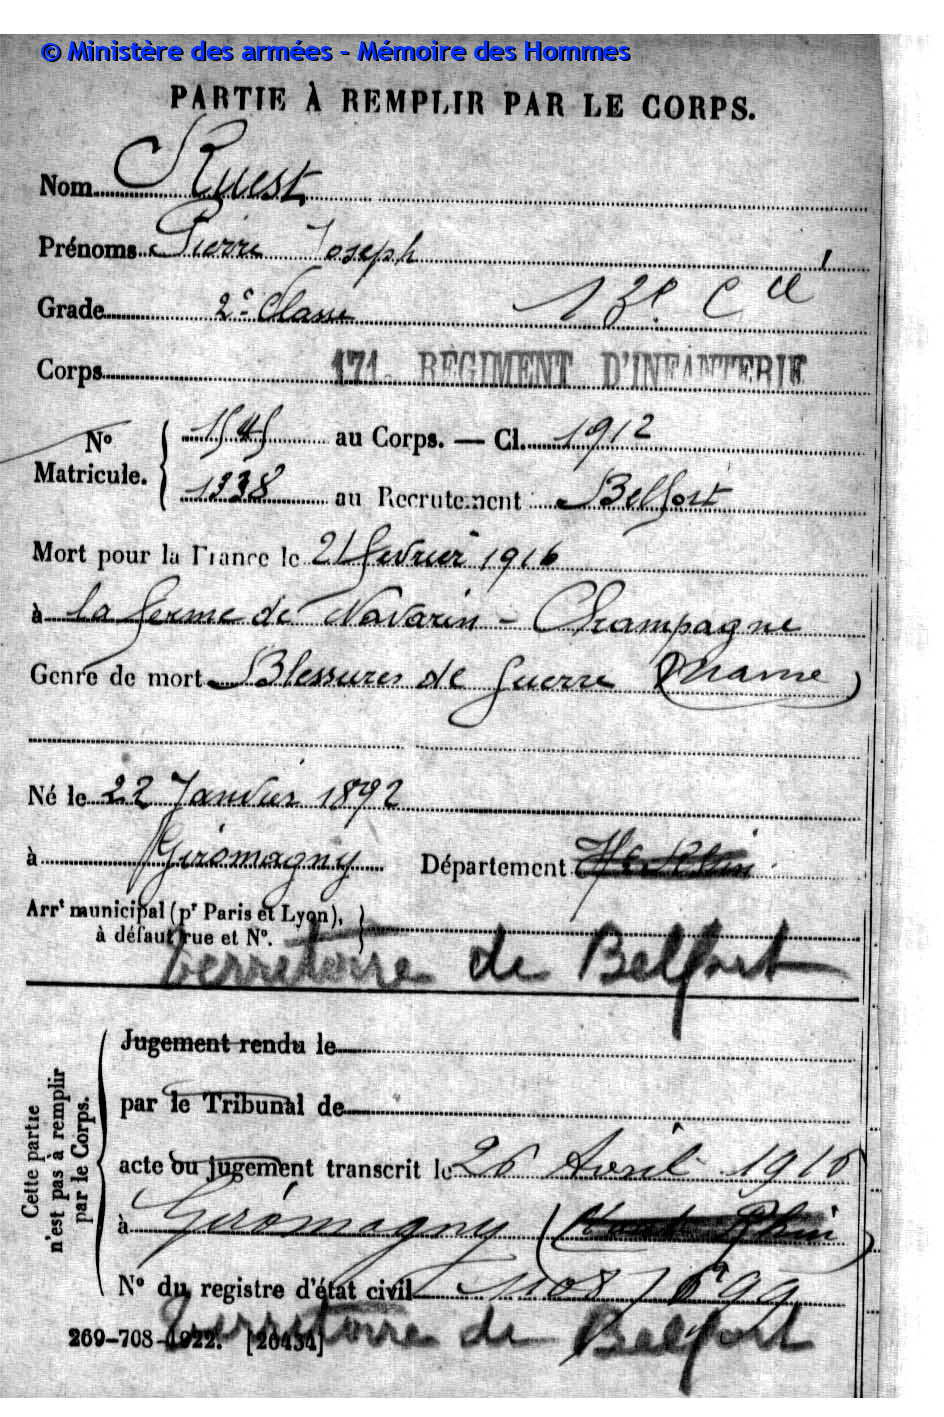 © Ministère des armées - Mémoire des Hommes
PARTIE À REMPLIR PAR LE CORPS.
Nom Ruest
Prénoms Pierre Joseph
Grade 2e Classe 13e Cie
Corps 171e RÉGIMENT D'INFANTERIE
No Matricule. 1545 au Corps. — Cl. 1912
1338 au Recrutement Belfort
Mort pour la France le 21 février 1916
à la ferme de Navarin - Champagne
Genre de mort Blessures de guerre (Marne)
Né le 22 Janvier 1892
à Giromagny Département Ht Rhin
Arrt municipal (pr Paris et Lyon),
à défaut rue et No.
Territoire de Belfort
Cette partie n'est pas à remplir par le Corps.
Jugement rendu le
par le Tribunal de
acte ou jugement transcrit le 26 Avril 1916
à Giromagny (Haut Rhin)
No du registre d'état civil 1108/
Territoire de Belfort
269-708-1922. [26434]